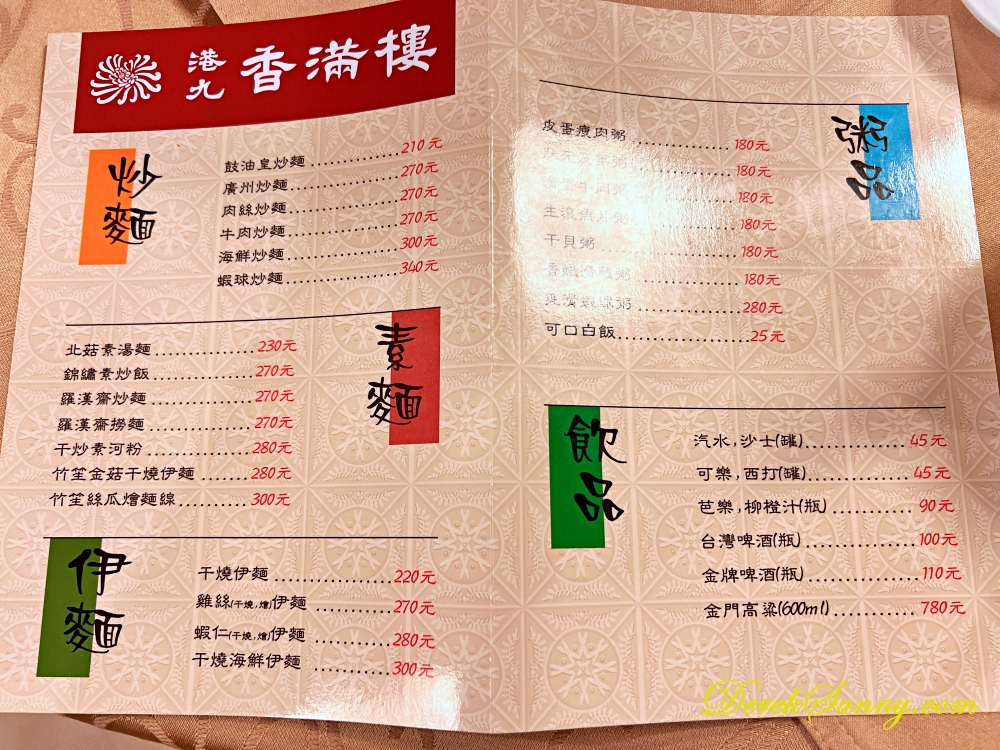 港九 香滿樓
炒麵
鼓油皇炒麵 210元
廣州炒麵 270元
肉絲炒麵 270元
牛肉炒麵 270元
海鮮炒麵 300元
蝦球炒麵 340元
素麵
北菇素湯麵 230元
錦繡素炒飯 270元
羅漢齋炒麵 270元
羅漢齋撈麵 270元
干炒素河粉 280元
竹笙金菇干燒伊麵 280元
竹笙絲瓜燴麵線 300元
伊麵
干燒伊麵 220元
雞絲(干燒,燴)伊麵 270元
蝦仁(干燒,燴)伊麵 280元
干燒海鮮伊麵 300元
粥品
皮蛋瘦肉粥 180元
180元
180元
生滾魚片粥 180元
干貝粥 180元
180元
爽滑蝦球粥 280元
可口白飯 25元
飲品
汽水,沙士(罐) 45元
可樂,西打(罐) 45元
芭樂,柳橙汁(瓶) 90元
台灣啤酒(瓶) 100元
金牌啤酒(瓶) 110元
金門高粱(600ml) 780元
DerekSunny.com